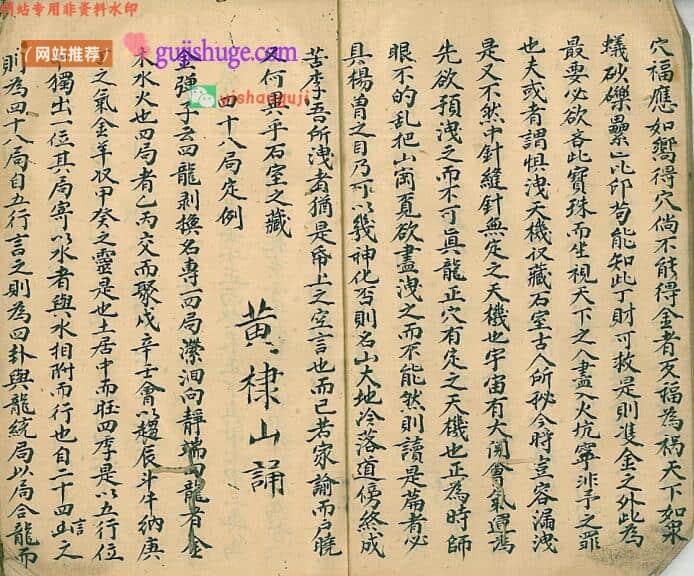 网站专用非资料水印
(网站推荐)
gujishuge.com
yishanguji
穴福應如嚮得穴倘不能得金者反福為禍天下如衆
蟻砂礫壘立即苟能知此丁財可救是則雙金之外此為
最要必欲吝此寶珠而坐視天下之人盡入火坑寧非予之罪
也夫或者謂恨洩天機仅藏石室古人所秘今時豈容漏洩
是又不然中針縫針無定之天機也宇宙有大闔會氣運為
先欲預洩之而不可眞龍正穴有定之天機也正為時師
眼不的乱把山崗覓欲盡洩之而不能然則讀是篇者必
具楊曾之目乃可以幾神化否則名山大地冷落道傍終成
苦李吾所洩者猶是帋上之空言也而已若家諭而戶曉
又何異乎石室之藏
四十八局定例
黄棣山誦
金彈子云四龍剥換名專一四局瀠洄向靜端四龍者金
木水火也四局者乙丙交而聚戌辛壬會以趨辰斗牛納庚
之氣金羊収甲癸之靈是也土居中而旺四季是以五行位
獨出一位其局寄以水者與水相附而行也自二十四山言之
則為四十八局自五行言之則為四卦與龍統局以局合龍而